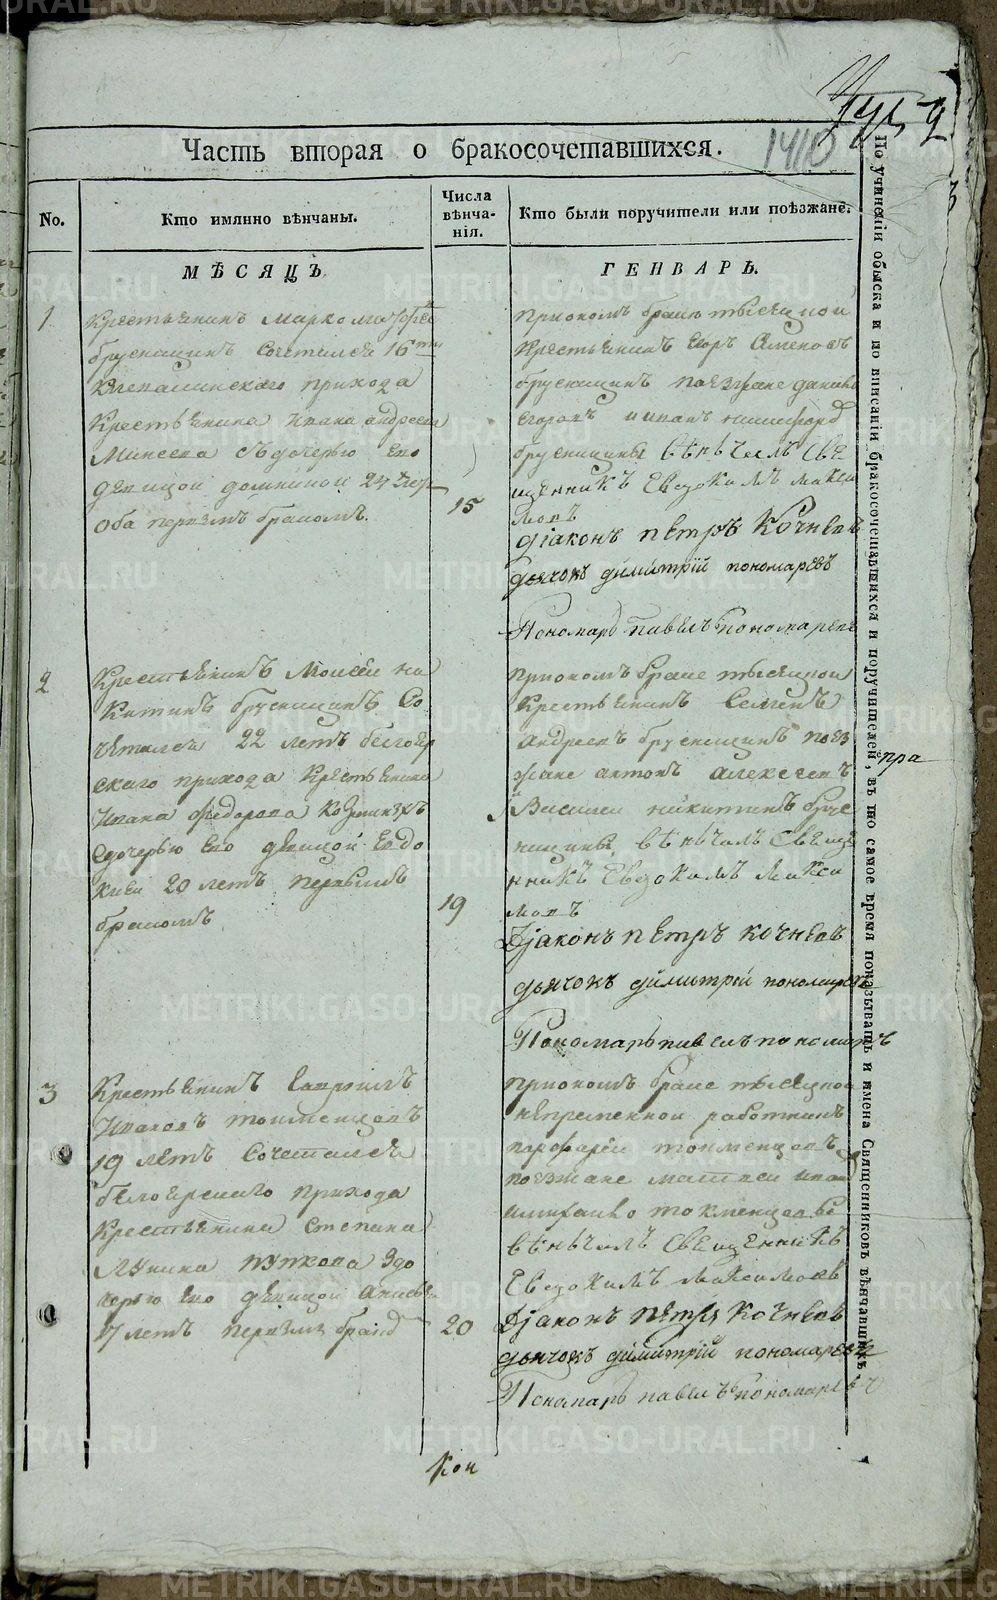 Часть вторая о бракосочетавшихся.
1410
No.
Кто имянно вѣнчаны.
Числа вѣнча-нія.
Кто были поручители или поѣзжане.
МѢСЯЦЪ
ГЕНВАРЬ.
1
Крестьянинъ Марко
брусницинъ сочетался 16
прихода
Крестьянина Ивана андреева
Минеева съдочерью ево
девицой домниной 24 лет
оба первымъ бракомъ.
15
приономъ браке тысецкой
Крестьянинъ егоръ Семеновъ
брусницинъ поезжане данило
егоровъ и иванъ
брусницины венчалъ Све
щенникъ Евдокимъ макси
мовъ
діаконъ петръ Кочневъ
дьячокъ димитрій пономаревъ
Пономарь павелъ пономаревъ
2
Крестьянинъ Моисей ни
китинъ брусницинъ Со
четался 22 летъ белоер
скаго прихода Крестьянина
Ивана федорова
здочерью ево девицой Евдо
киеи 20 летъ первымъ
бракомъ
19
приономъ браке тысецкой
Крестьянинъ Семенъ
андреевъ брусницинъ поез
жане антонъ алексеевъ
и Василеи никитинъ брус
ницины венчалъ Свеще
нникъ Евдокимъ Макси
мовъ
Діаконъ петръ кочневъ
дьячокъ димитрій пономаревъ
Пономарь павелъ пономаревъ
3
Крестьянинъ гаврилъ
Ивановъ токменцовъ
19 летъ Сочетался
белоерскаго прихода
Крестьянина Степана
Лукина пупкова здо
черью ево девицой
17 летъ первымъ
20
приономъ браке тысецкой
непременной работникъ
парфирей токменцовъ
поезжане матвеи
токменцовы
венчалъ Священникъ
Евдокимъ максимовъ
Діаконъ петръ кочневъ
дьячокъ димитрій пономаревъ
Пономарь павелъ пономаревъ
Кон
По учиненіи обыска и по вписаніи бракосочетавшихся и поручителей, въ то самое время показывать и имена Священниковъ вѣнчавшихъ
пра
METRIKI.GASO-URAL.RU